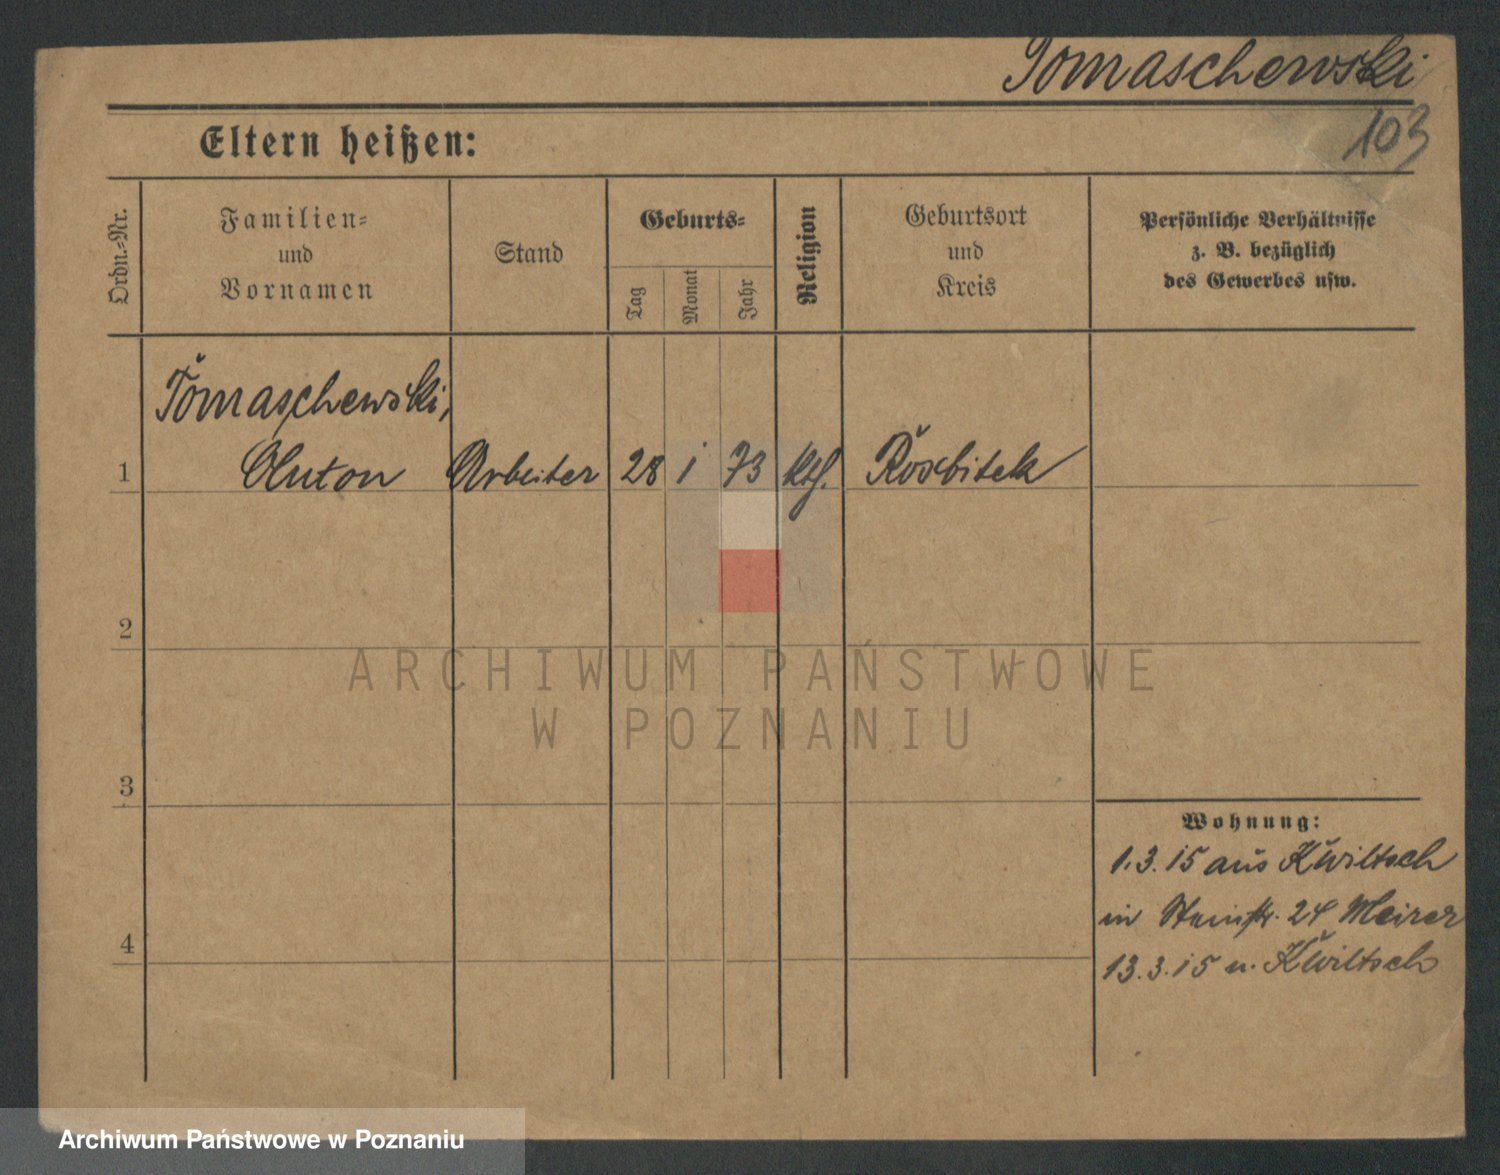 Tomaschewski
103
Eltern heißen:
Ordn.-Nr.
Familien-
und
Vornamen
Stand
Geburts-
Tag
Monat
Jahr
Religion
Geburtsort
und
Kreis
Persönliche Verhältnisse
z. B. bezüglich
des Gewerbes usw.
Tomaschewski,
1 Anton Arbeiter 28 1 73 kth. Rosbitek
2
3
4
Wohnung:
1.3.15 aus Kwiltsch
in Steinstr. 24 Meirer
13.3.15 n. Kwiltsch
ARCHIWUM PAŃSTWOWE
W POZNANIU
Archiwum Państwowe w Poznaniu